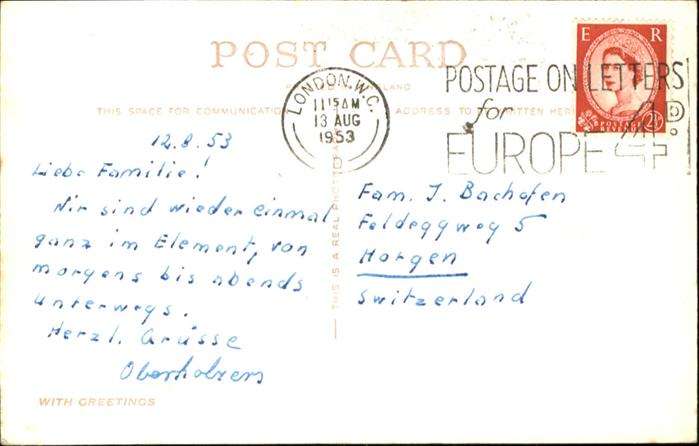 POST CARD
THIS SPACE FOR COMMUNICATION
ADDRESS TO
WRITTEN HERE
LONDON.W.C.
11 15 AM
13 AUG
1953
POSTAGE ON LETTERS
for
EUROPE 4D.
E R
POSTAGE
REVENUE
2½
12.8.53
Liebe Familie!
Wir sind wieder einmal
ganz im Element, von
morgens bis abends
unterwegs.
Herzl. Grüsse
Oberholzers
THIS IS A REAL PHOTO
Fam. J. Bachofen
Feldeggweg 5
Horgen
Switzerland
WITH GREETINGS